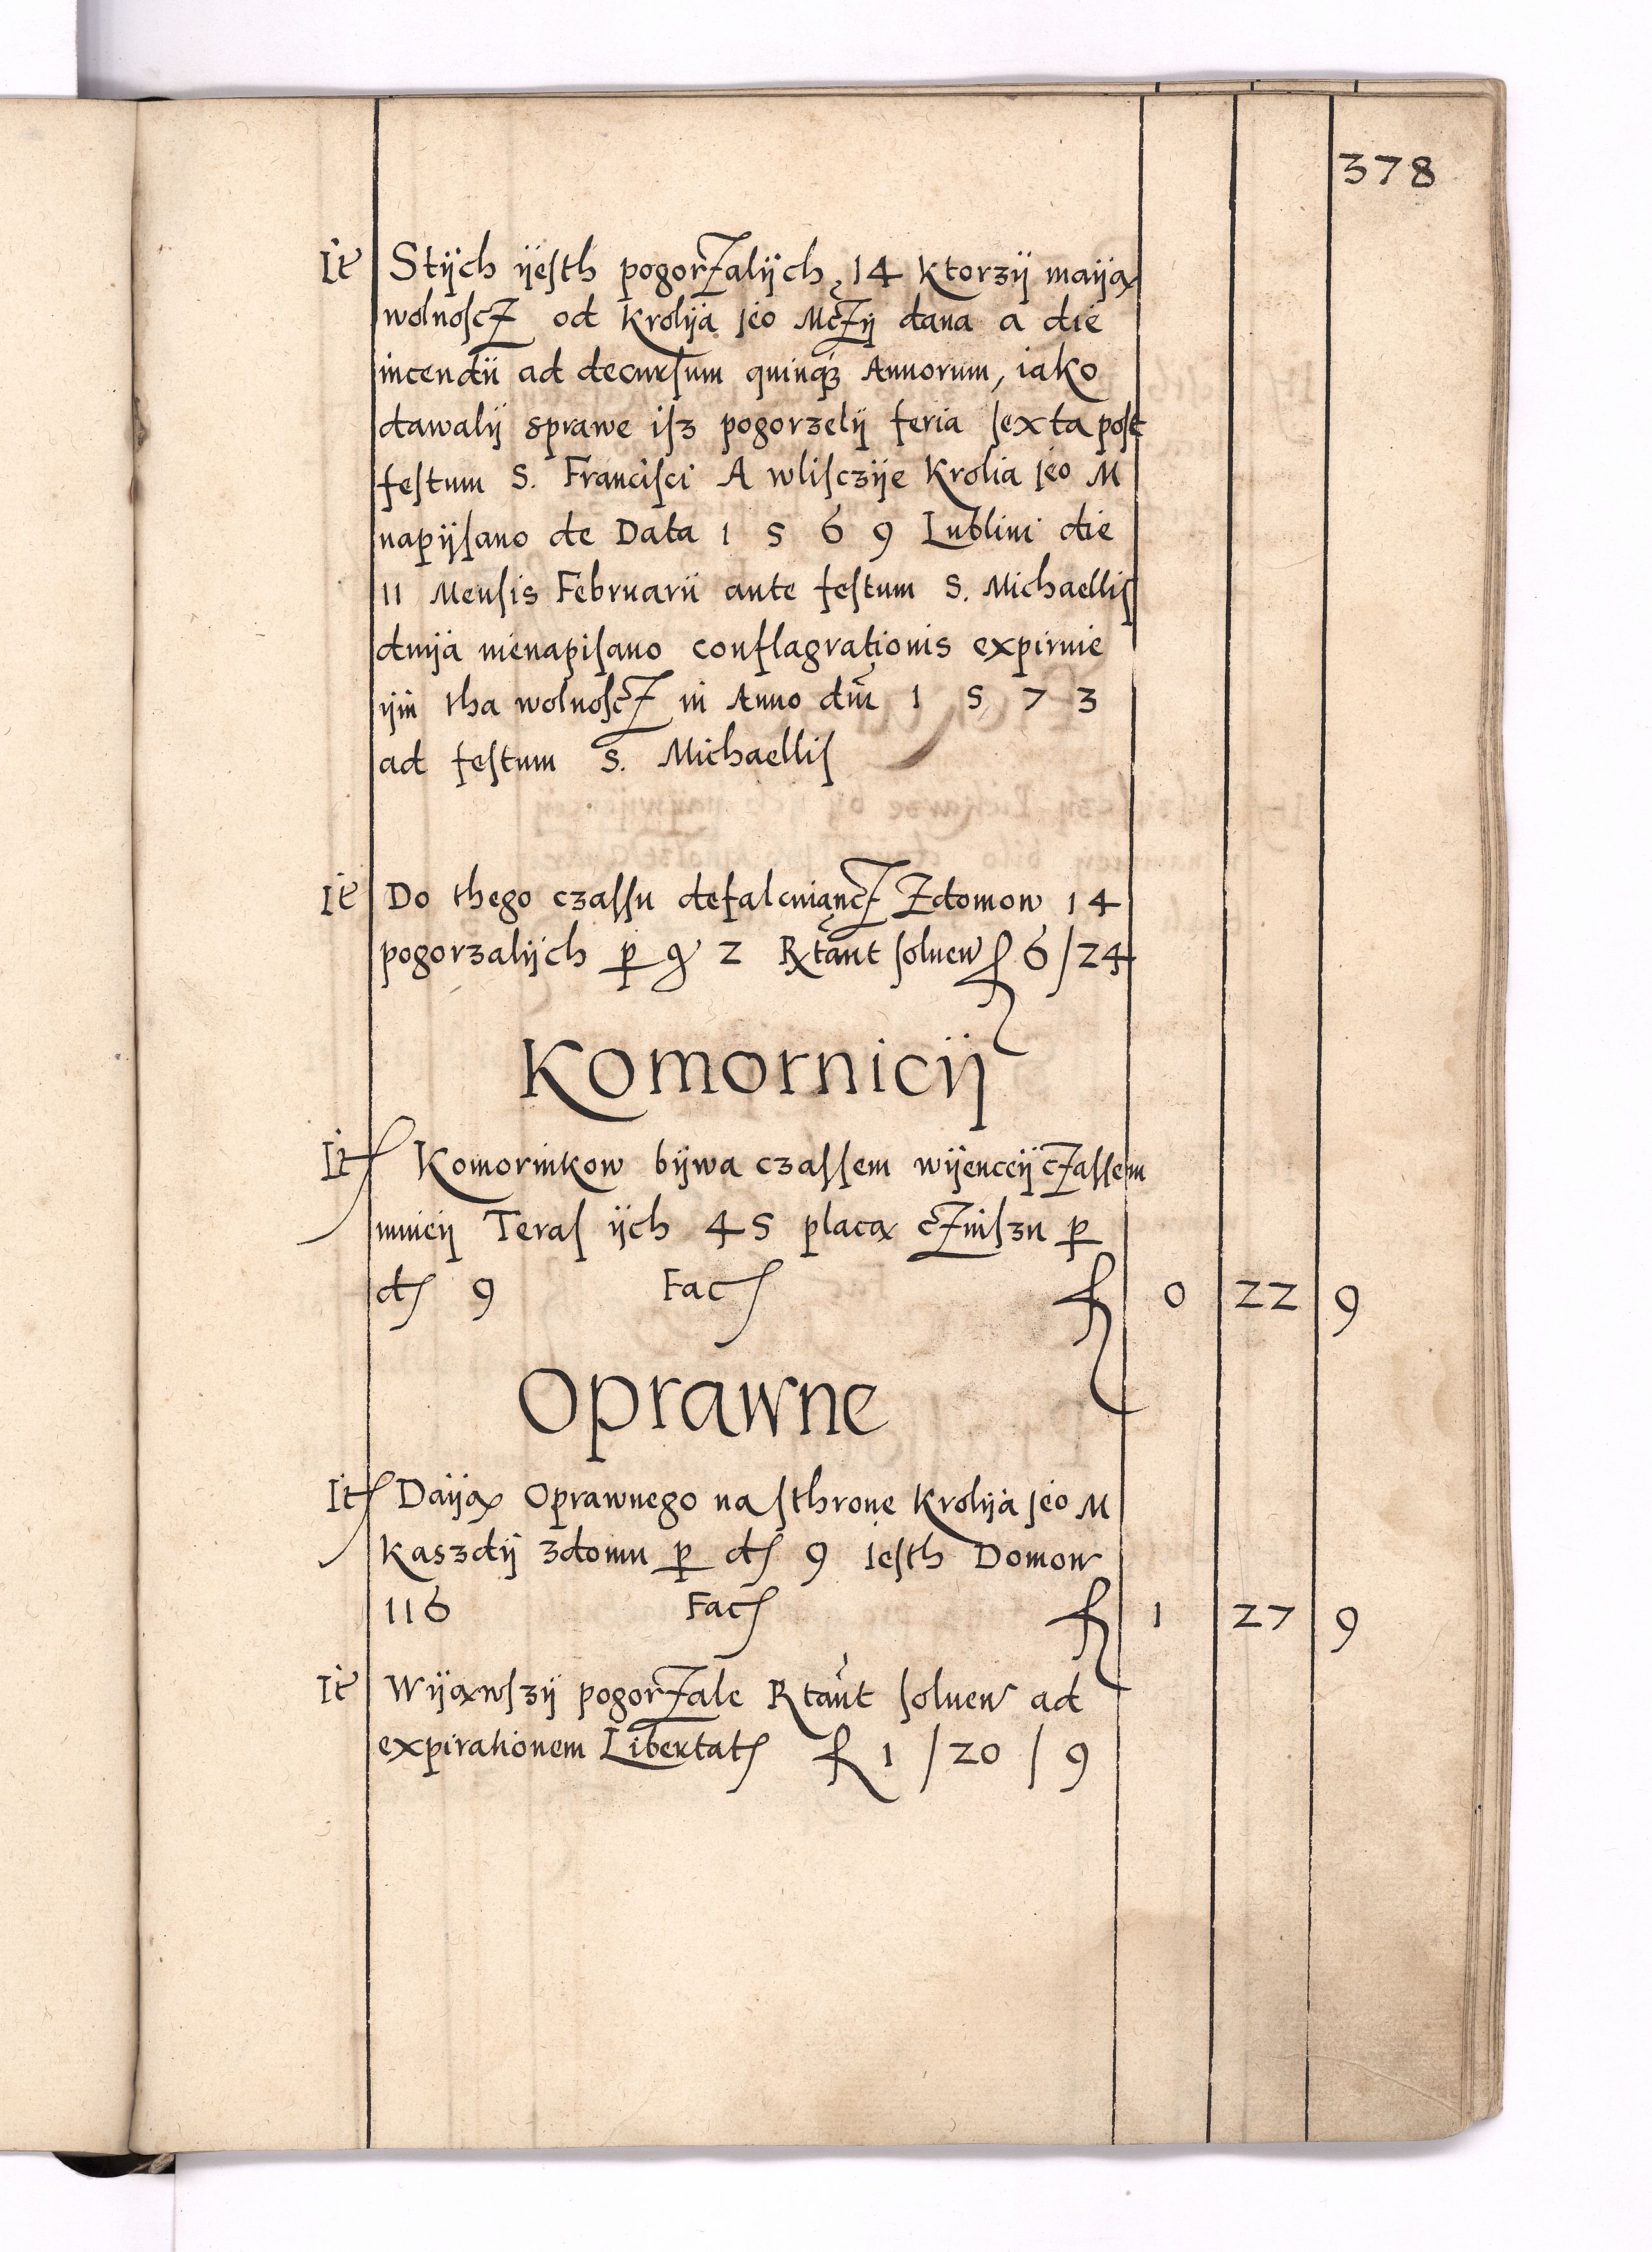 378
It Stÿch ÿesth pogorZalÿch 14 ktorzÿ maÿą
wolnoſcZ od Krolÿa ſeo MczZÿ dana a die
incendii ad decurſum quinq₃ Annorum, iako
dawalÿ sprawe iſz pogorzelÿ feria ſexta poſt
feſtum S. Franciſci A wliſczÿe Krolia ſeo M
napÿſano de Data 1 5 6 9 Lublini die
11 Menſis Februarii ante feſtum S. Michaelliſ
dnÿa nienapiſano conflagrationis expirnie
ÿm tha wolnoſcZ in Anno dni 1 5 7 3
ad feſtum S. Michaelliſ
It Do thego czaſſu defalcuiącZ Zdomow 14
pogorzalÿch p gr 2 Rtant ſoluen f 6/24
Komornicÿ
It Komornikow bÿwa czaſſem wÿenceÿ cZaſſem
mnieÿ Teraſ ÿch 45 placą cZniſzu p
d 9 Fac f 0 22 9
Oprawne
It Daÿą Oprawnego na ſthrone Krolÿa ſeo M
kaszdÿ zdomu p d 9 ieſth Domow
116 Fac f 1 27 9
It Wÿąwſzÿ pogorZale Rtant ſoluen ad
expirationem Libertat f 1 / 20 / 9